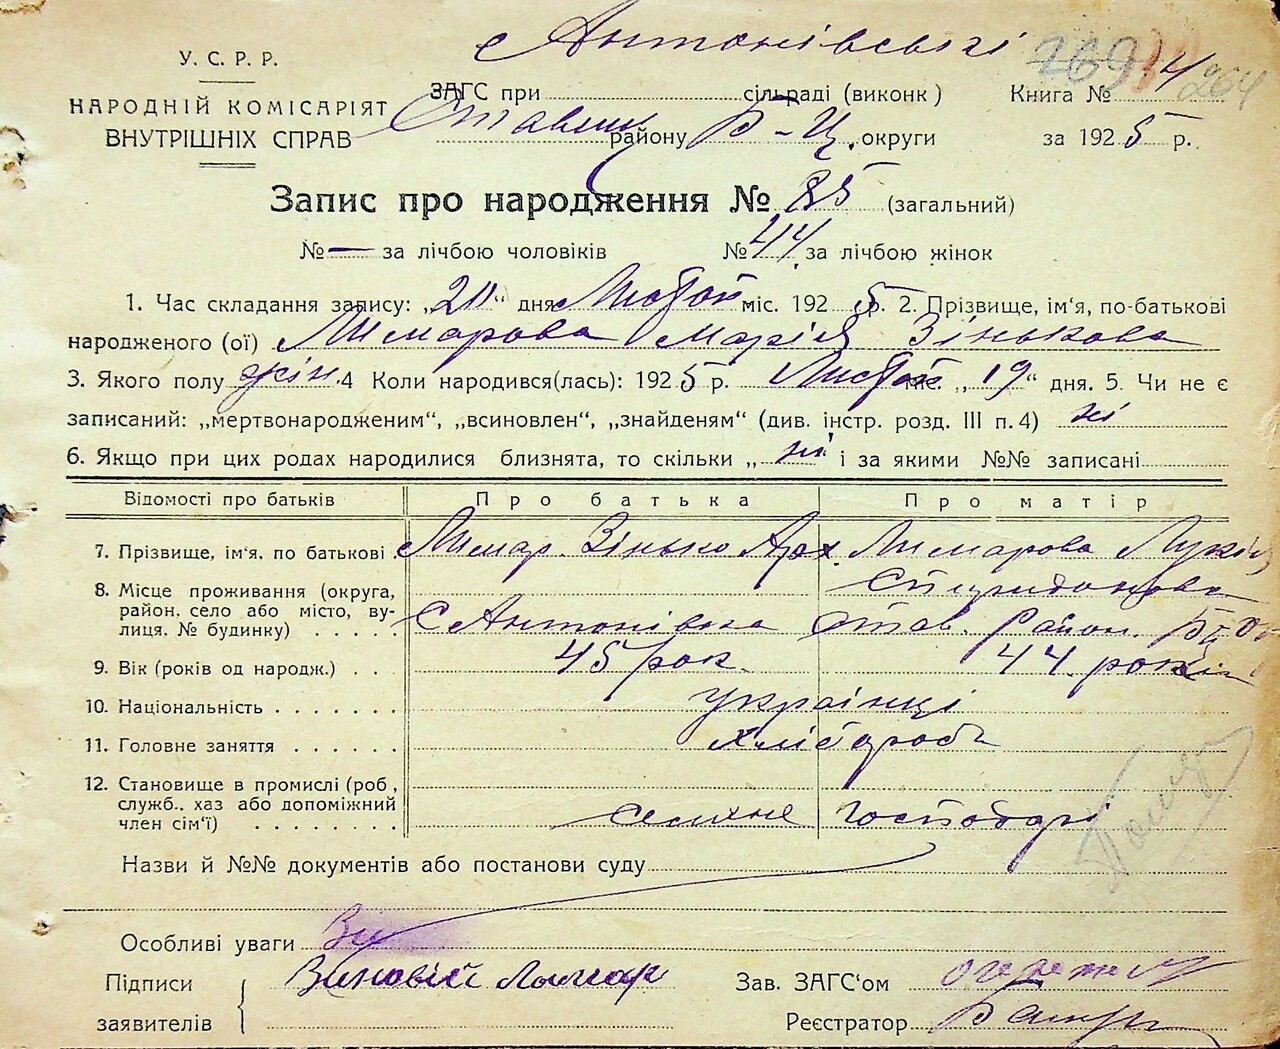 с Антонівській
У. С. Р. Р.
НАРОДНІЙ КОМІСАРІЯТ
ВНУТРІШНІХ СПРАВ
ЗАГС при сільраді (виконк) Книга № 14 264
Ставищ району Б-Ц. округи за 1925 р.
Запис про народження № 85 (загальний)
№ — за лічбою чоловіків № 44 за лічбою жінок
1. Час складання запису: „20" дня Листоп міс. 1925 р. 2. Прізвище, ім'я, по-батькові
народженого (ої) Лимарова Марія Зінькова
3. Якого полу жін. 4 Коли народився(лась): 1925 р. Листоп міс. „19" дня. 5. Чи не є
записаний: „мертвонародженим", „всиновлен", „знайденям" (див. інстр. розд. III п. 4) ні
6. Якщо при цих родах народилися близнята, то скільки „ ні " і за якими №№ записані
Відомості про батьків Про батька Про матір
7. Прізвище, ім'я, по батькові Лимар Зінько Арх. Лимарова Лукія
Спиридонова
8. Місце проживання (округа,
район, село або місто, ву-
лиця, № будинку) с Антонівка Став. Район. БЦ Ок
9. Вік (років од народж.) 45 рок 44 років
10. Національність українці
11. Головне заняття хлібороб
12. Становище в промислі (роб,
служб., хаз або допоміжний
член сім'ї) селяне господарі
Назви й №№ документів або постанови суду
Особливі уваги Зи
Підписи
заявителів
Зиновій Лымар
Зав. ЗАГС'ом
Реєстратор